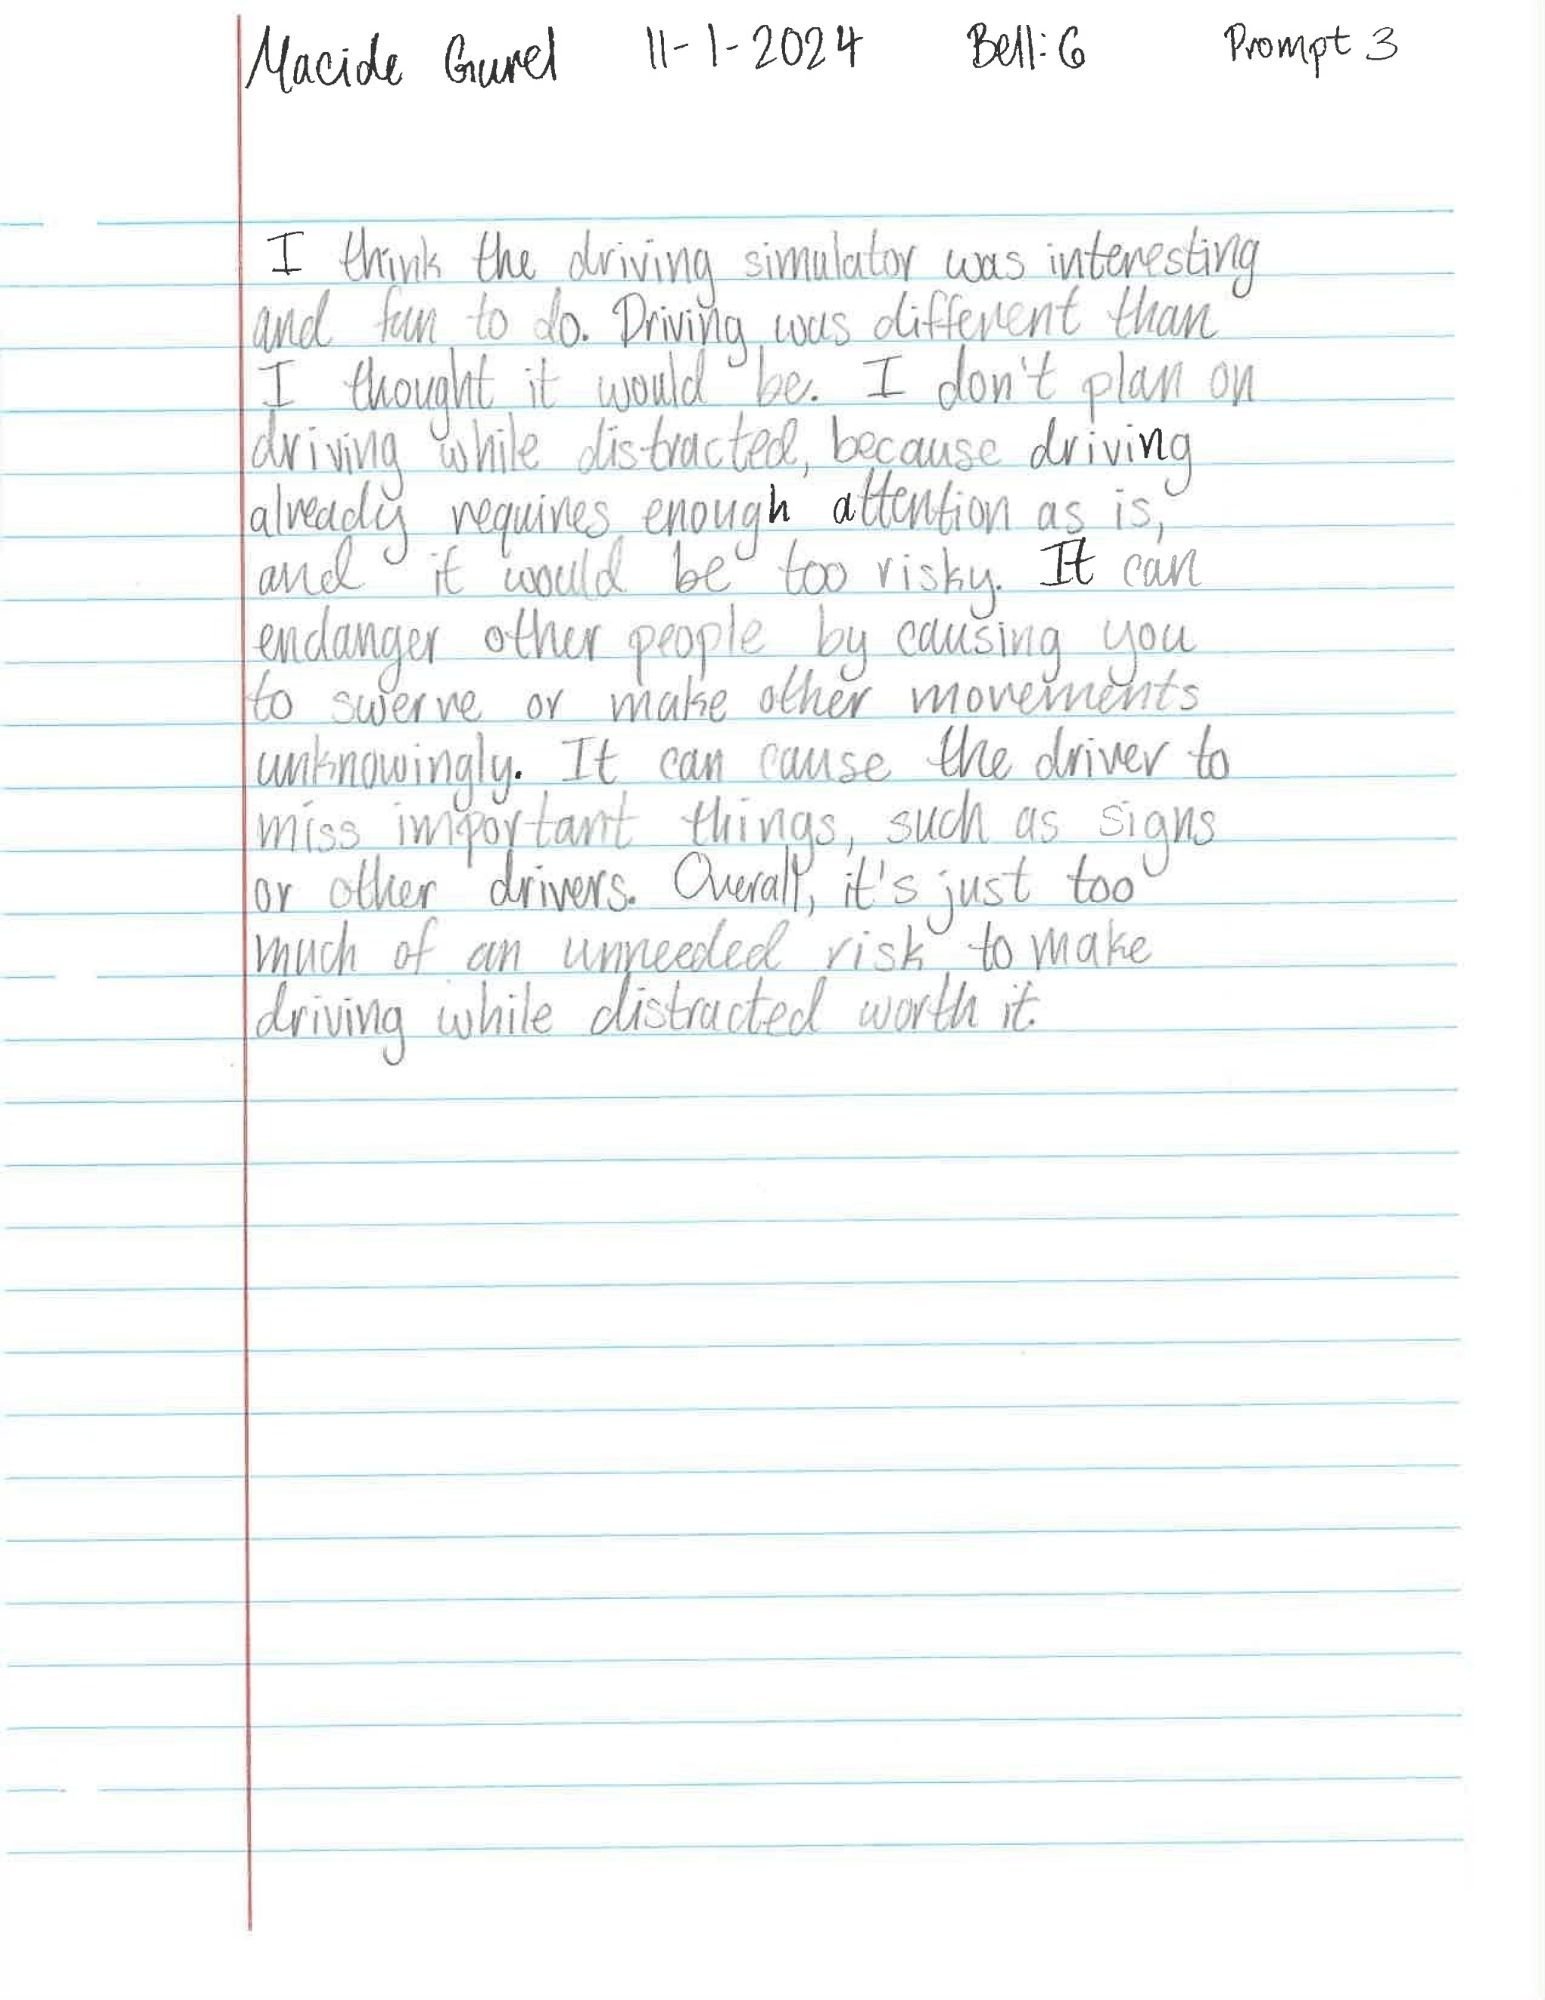 Macide Gurel 11-1-2024 Bell: 6 Prompt 3
I think the driving simulator was interesting
and fun to do. Driving was different than
I thought it would be. I don't plan on
driving while distracted, because driving
already requires enough attention as is,
and it would be too risky. It can
endanger other people by causing you
to swerve or make other movements
unknowingly. It can cause the driver to
miss important things, such as signs
or other drivers. Overall, it's just too
much of an unneeded risk to make
driving while distracted worth it.